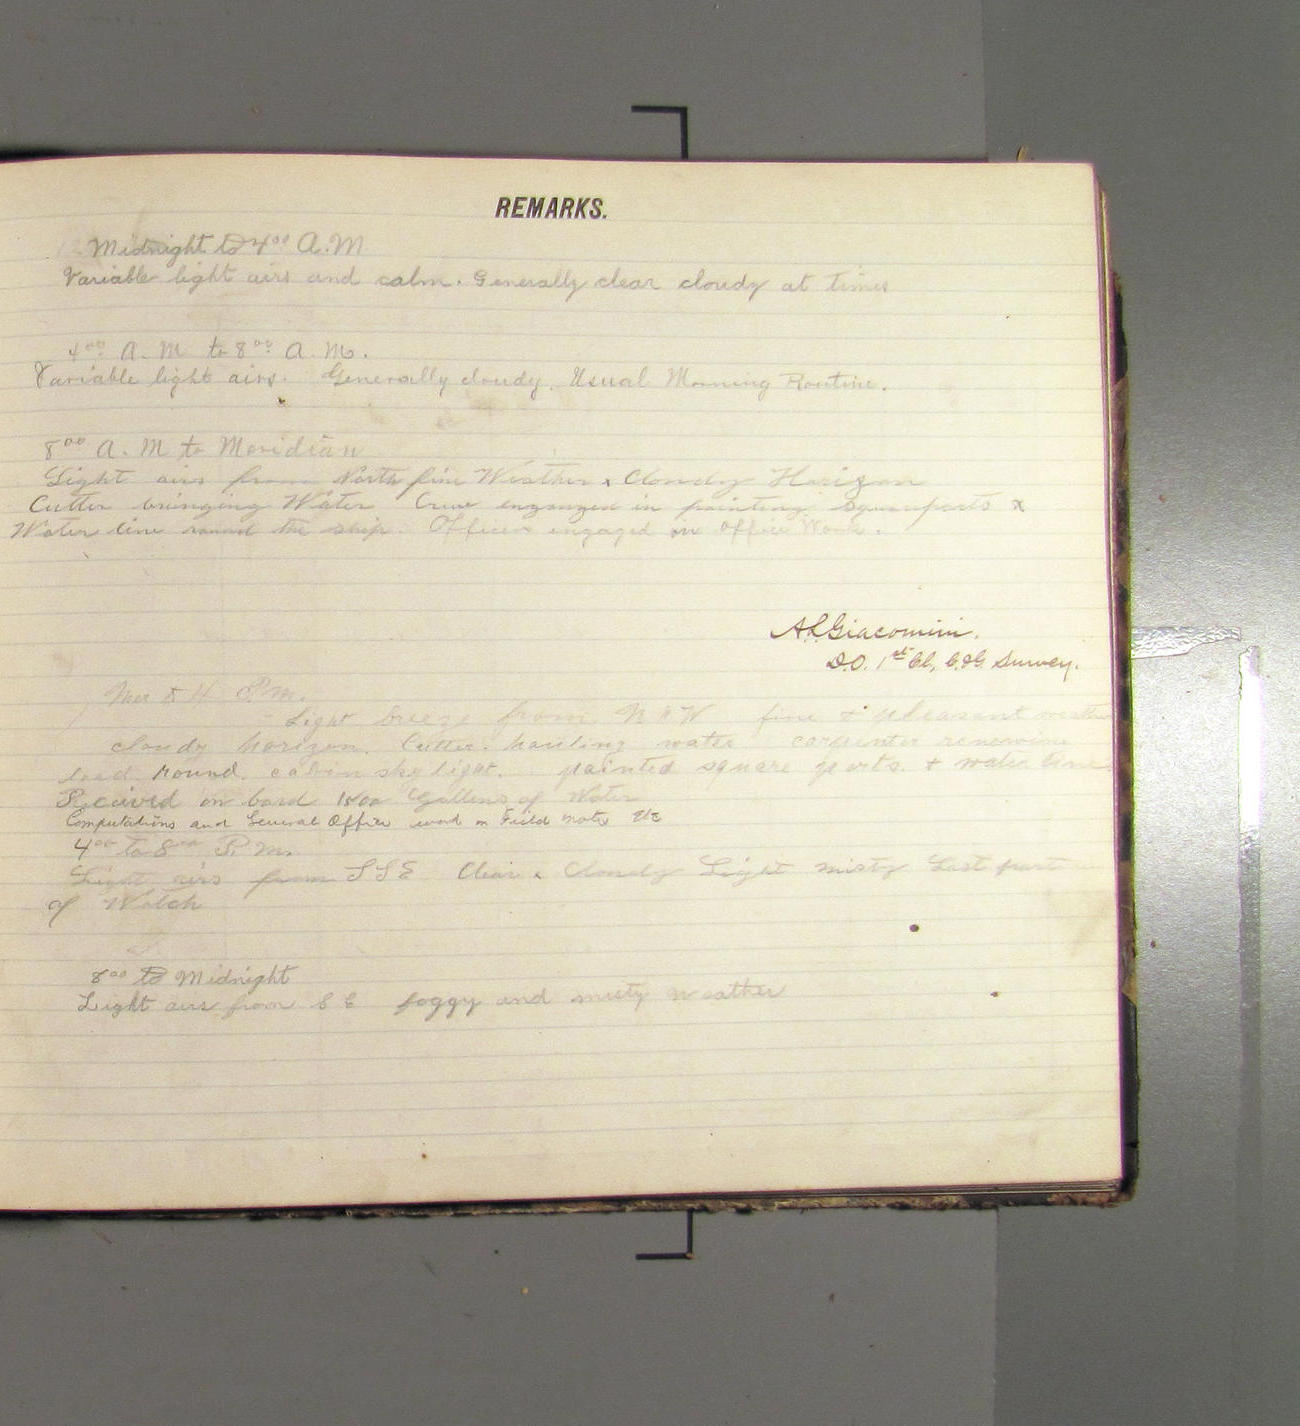 REMARKS.
Midnight to 4⁰⁰ A.M
Variable light airs and calm. Generally clear cloudy at times
4⁰⁰ A.M to 8⁰⁰ A.M.
Variable light airs. Generally cloudy. Usual Morning Routine.
8⁰⁰ A.M to Meridian
Light airs from North fine Weather & Cloudy Horizon
Cutter bringing Water Crew engaged in painting squareports &
Water line round the ship. Officers engaged in Office Work.
A.L. Giacomini.
D.O. 1st Cl, C.&G. Survey.
Mer to 4 P.m.
Light breeze from N & W fine & pleasant weather
cloudy horizon. Cutter hauling water carpenter renewing
lead round cabin skylight. painted square ports & water line
Received on bord 1500 Gallens of Water
Computations and General Office work on Field notes etc
4⁰⁰ to 8⁰⁰ P.M.
Light airs from SSE Clear & Cloudy Light misty Last part
of Watch
8⁰⁰ to Midnight
Light airs from SE foggy and misty weather